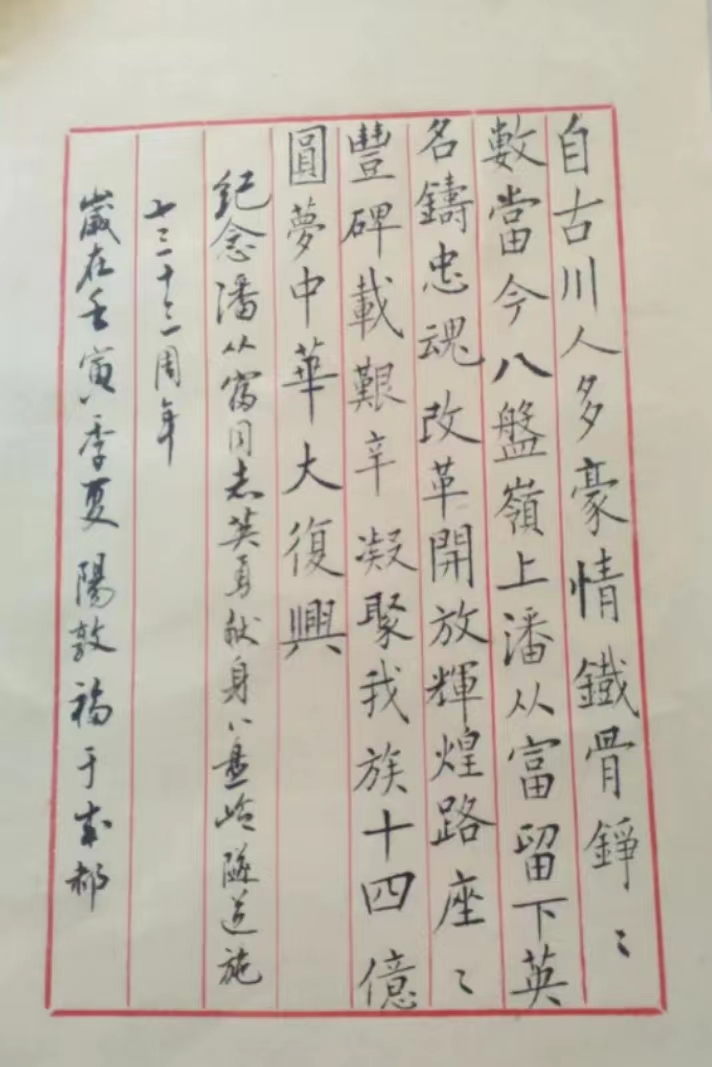 自古川人多豪情鐵骨錚〻
數當今八盤嶺上潘从富留下英
名鑄忠魂改革開放輝煌路座〻
豐碑載艱辛凝聚我族十四億
圓夢中華大復興
纪念潘从富同志英勇献身八盘岭隧道施
工三十三周年
歲在壬寅季夏陽敦福于成都